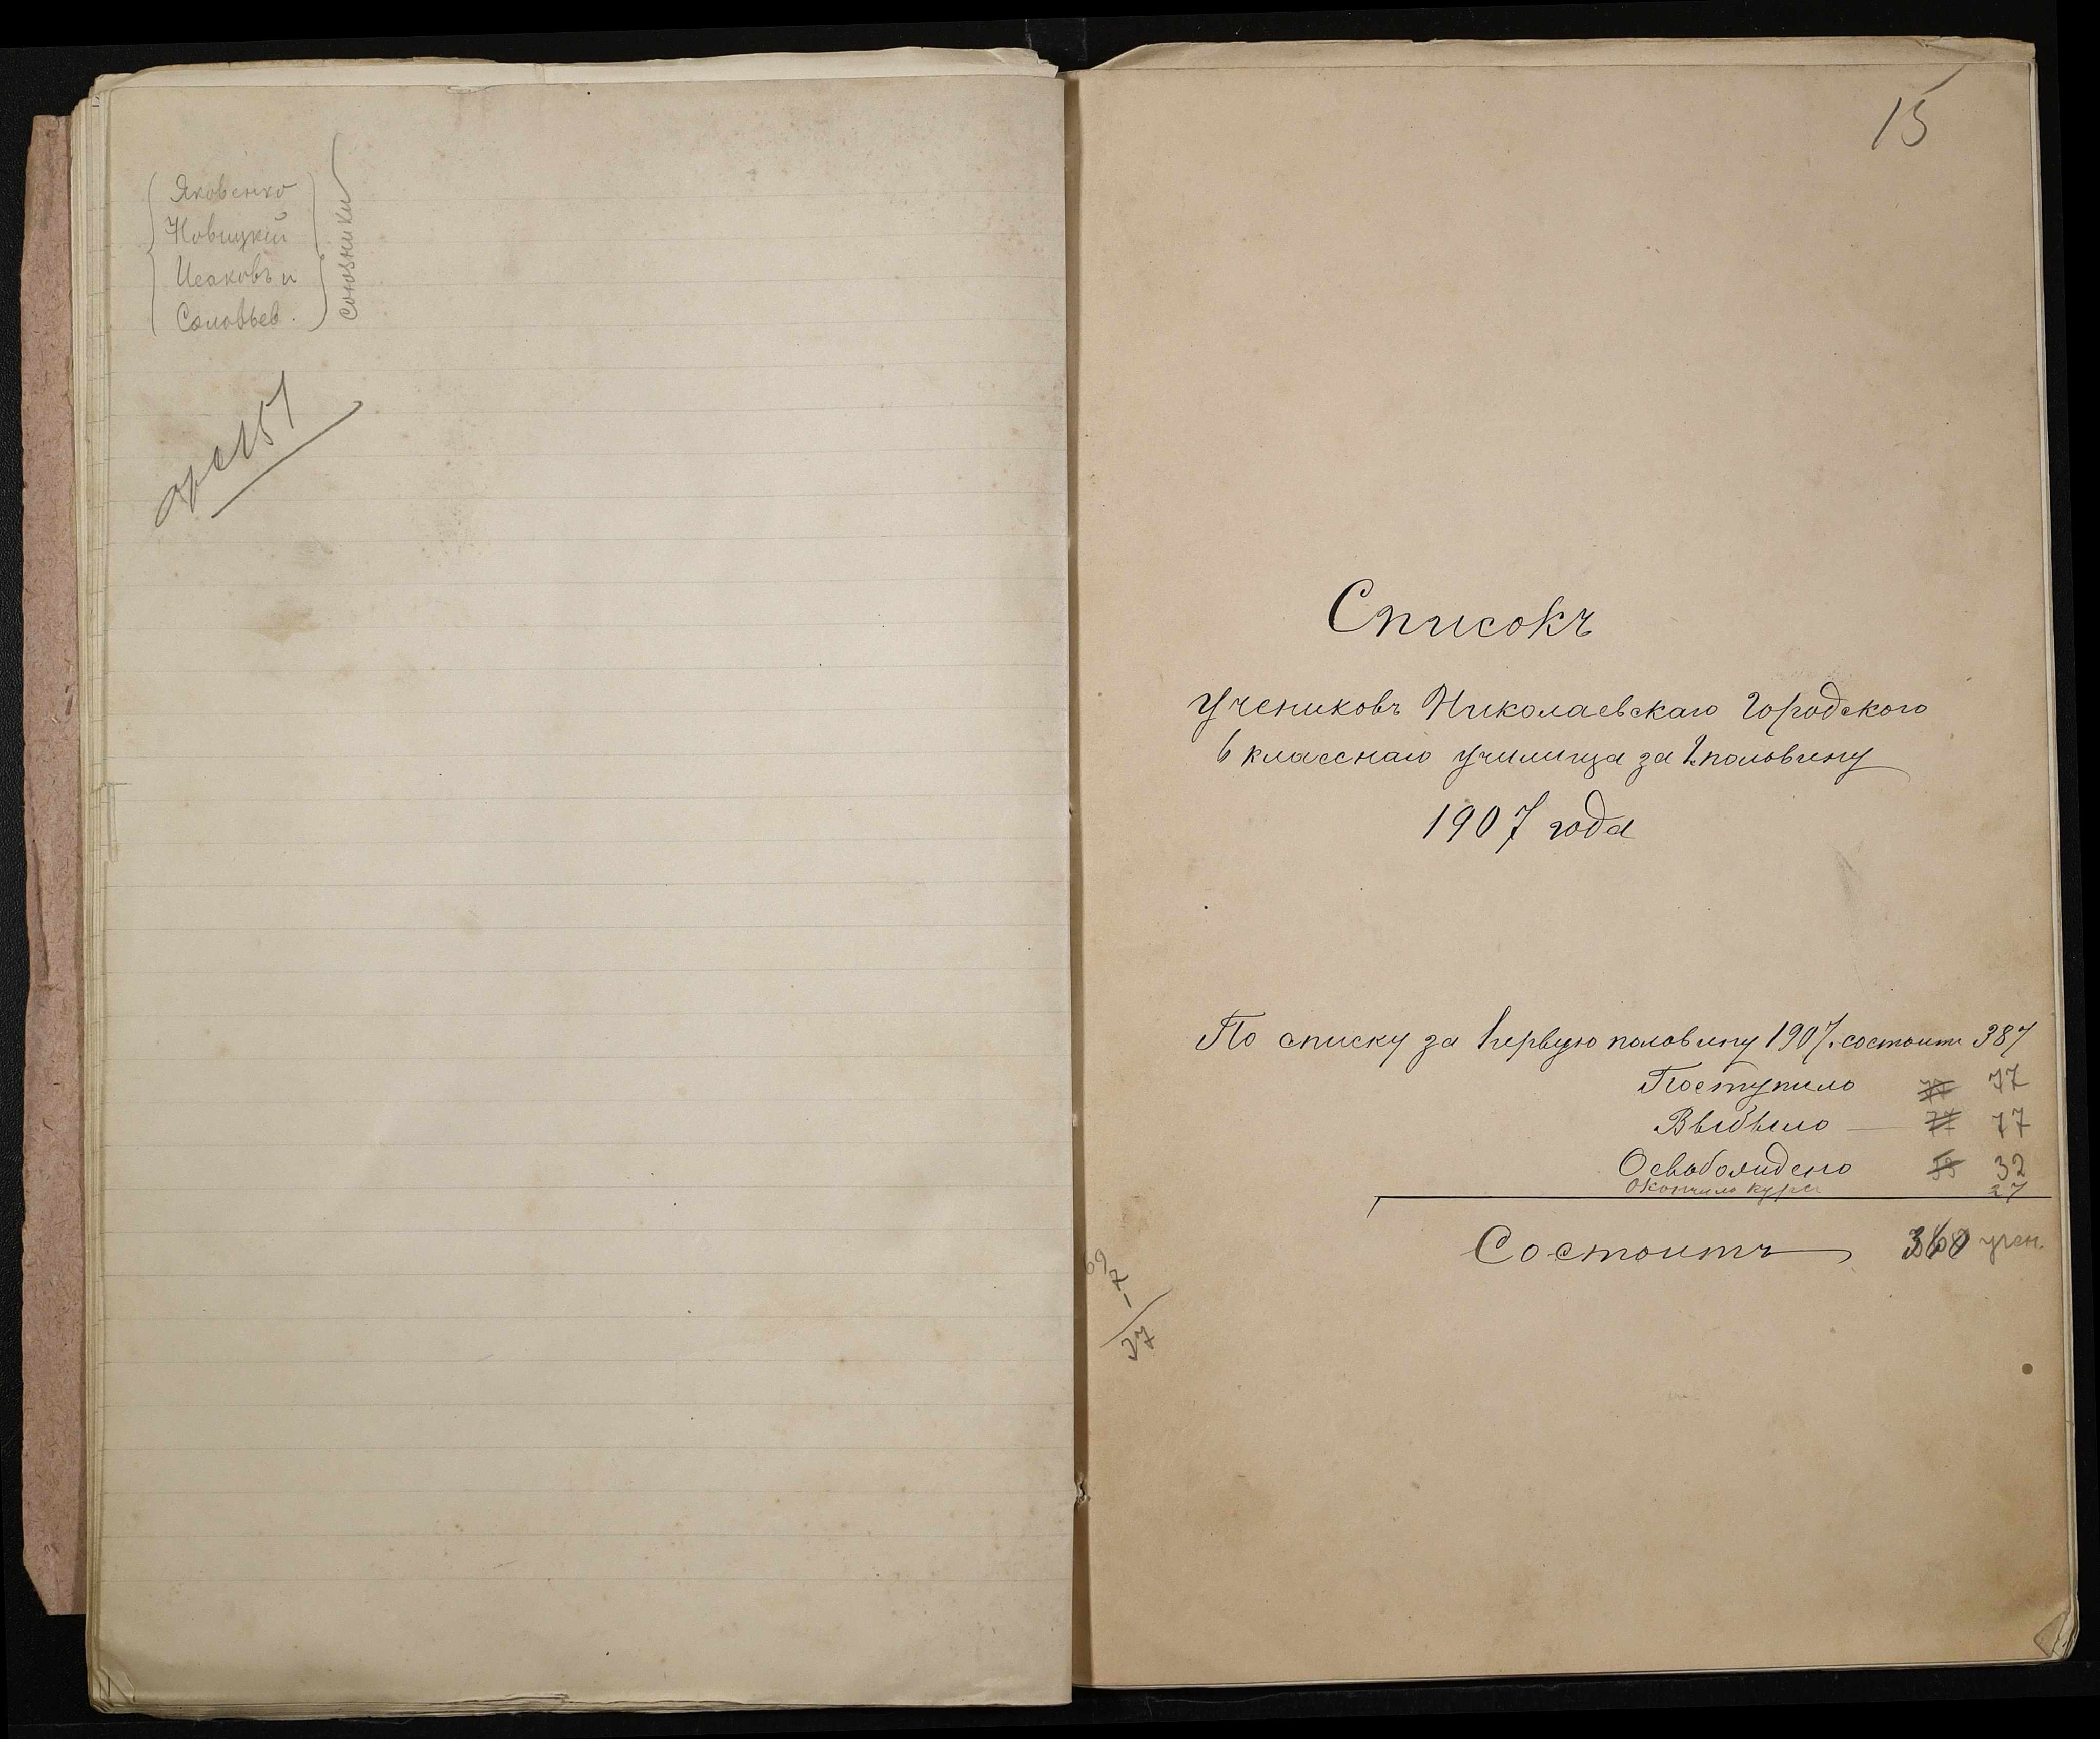 Яковенко
Новицкій
Исаковъ и
Соловьев.
союзники
15
Списокъ
Учениковъ Николаевскаго Городского
6 класснаго училища за 2 половину
1907 года
По списку за первую половину 1907 г. состоитъ 387
Поступило 77
Выбыло — 77
Освобождено 32
Окончило курсъ 27
Состоитъ 360 учен.